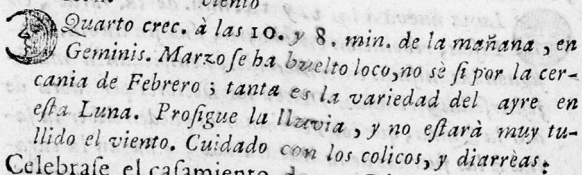 viento
Quarto crec. à las 10. y 8. min. de la mañana, en
Geminis. Marzo ſe ha buelto loco, no sè ſi por la cer-
cania de Febrero ; tanta es la variedad del ayre en
eſta Luna. Proſigue la lluvia, y no eſtarà muy tu-
llido el viento. Cuidado con los colicos, y diarrèas.
Celebraſe el caſamiento